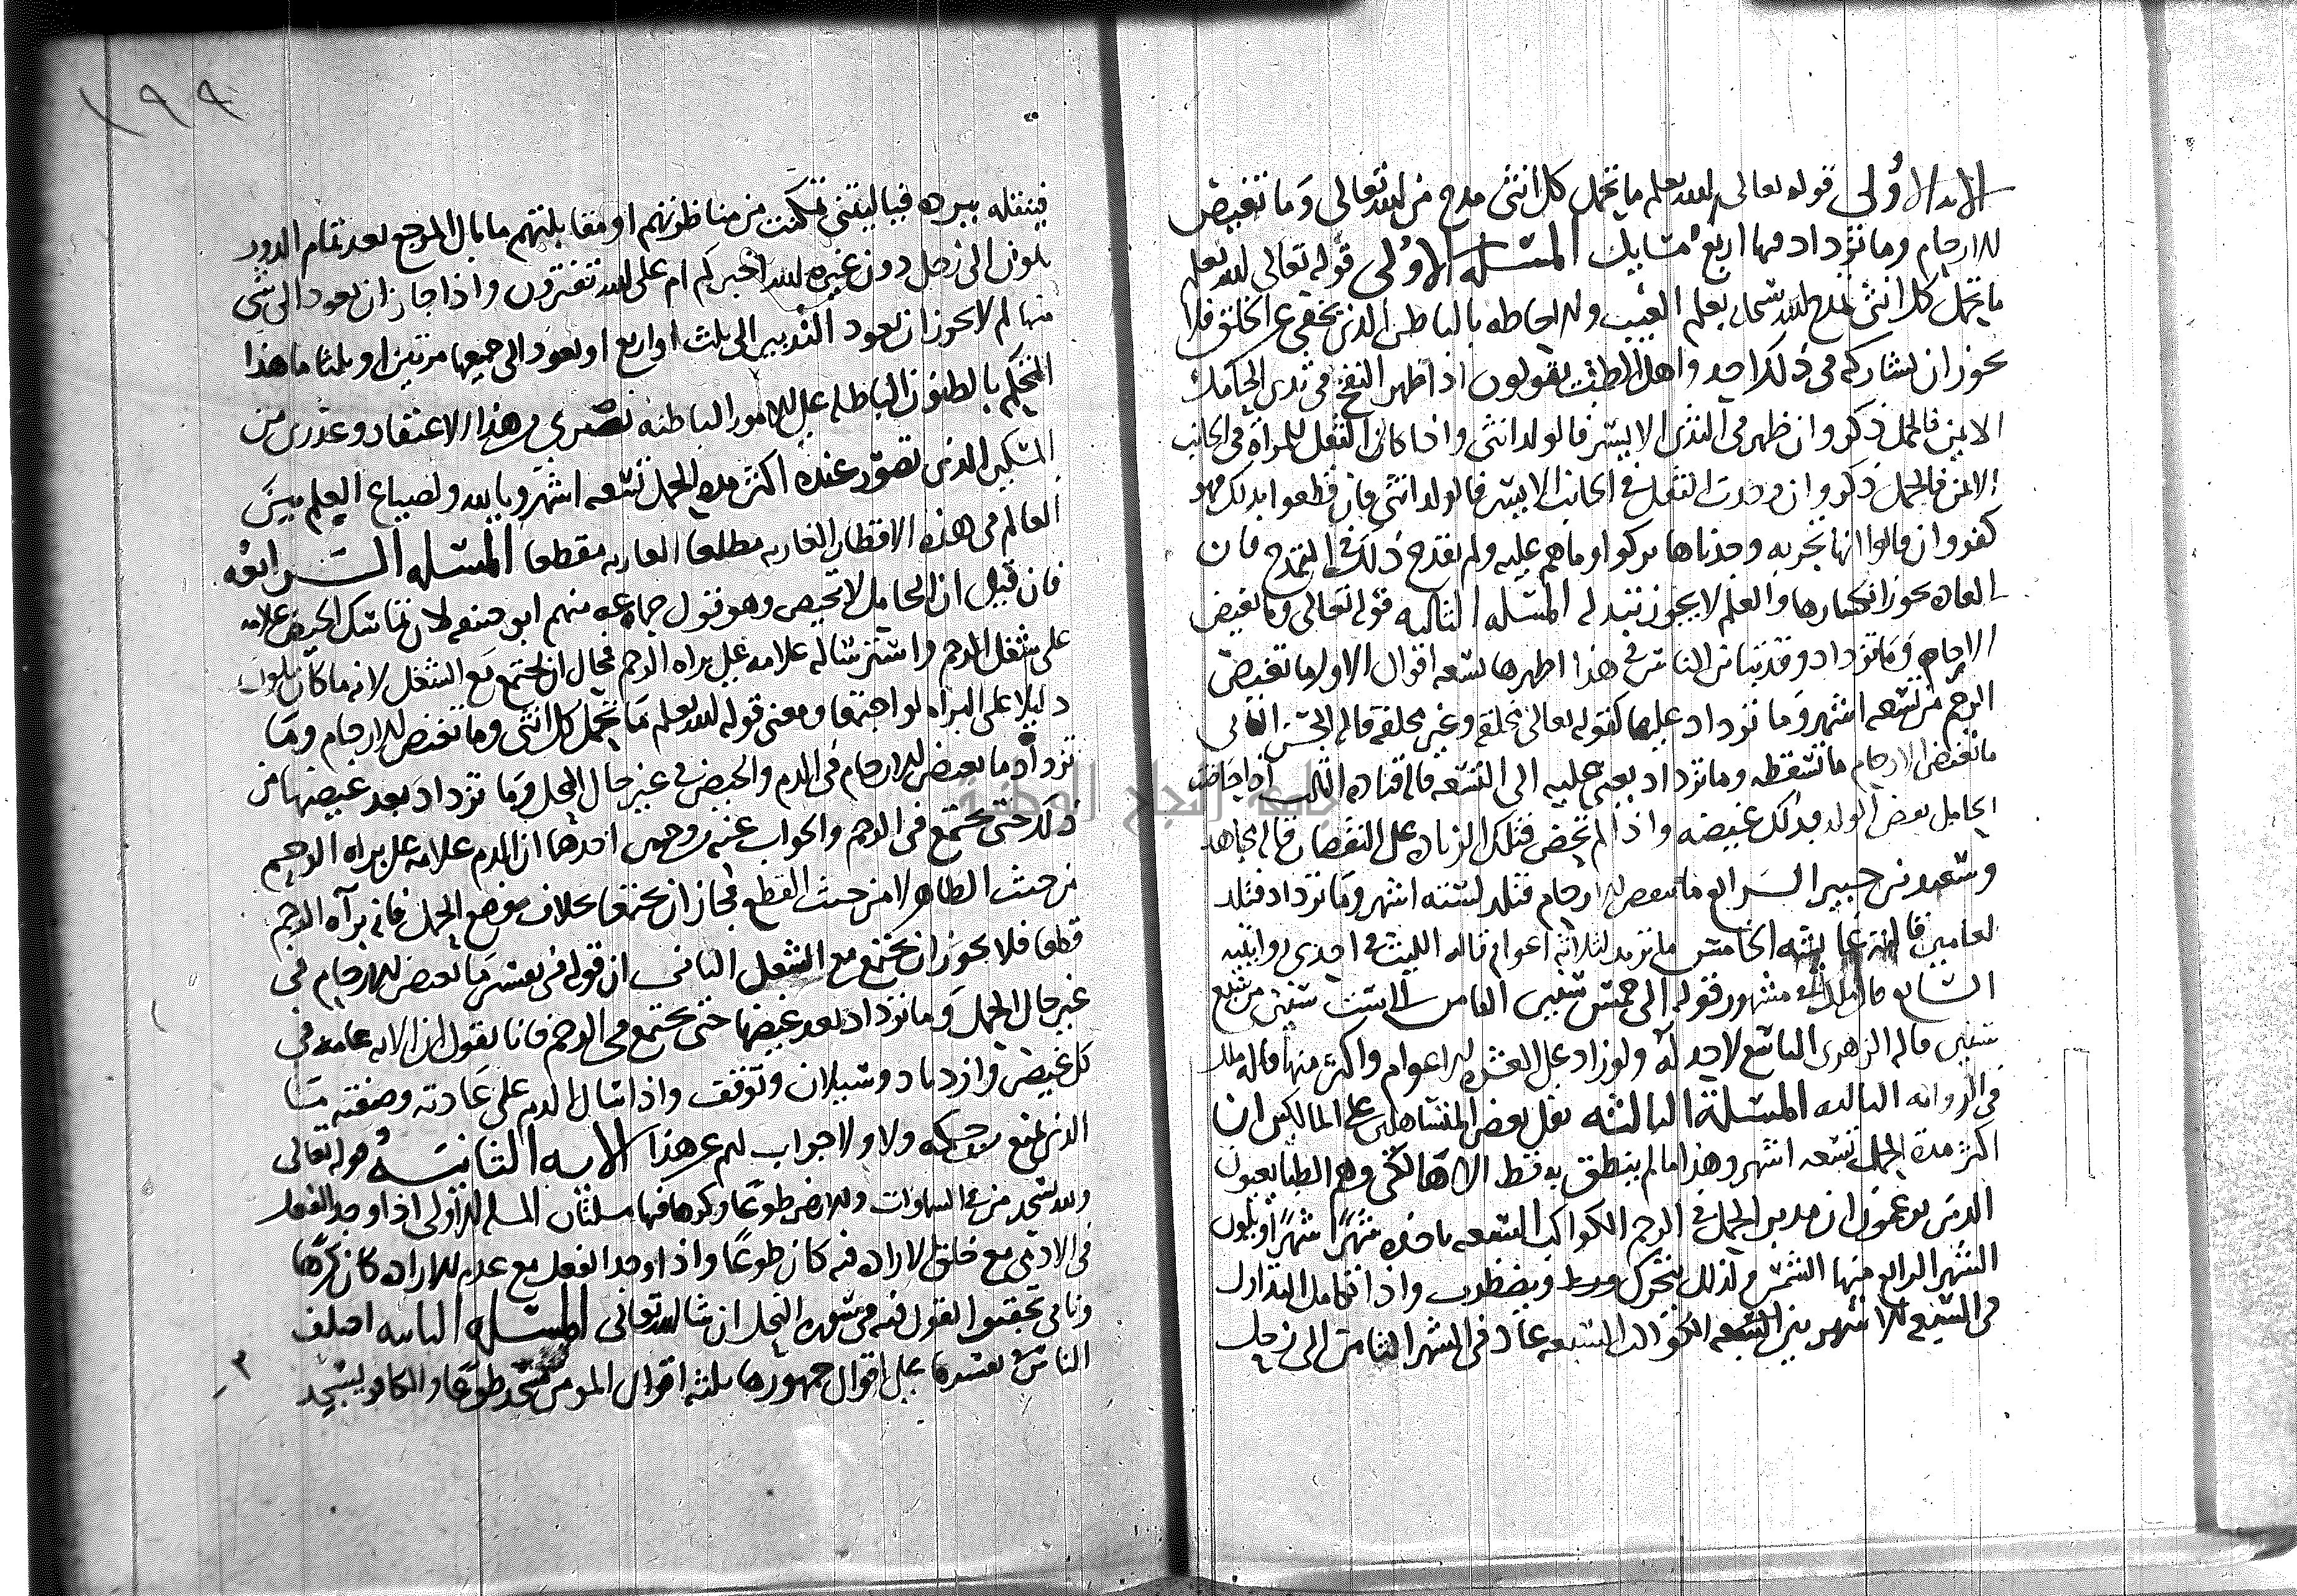 الايه الاولى قوله تعالى الله يعلم ما تحمل كل انثى مدح من الله تعالى وما تغيض
الارحام وما تزداد فيها اربع مسايل المسله الاولى قوله تعالى الله يعلم
ما تحمل كل انثى تمدح الله سبحانه بعلم الغيب والاحاطه بالباطن الذي يخفى على الخلق فلا
يجوز ان يشاركه في ذلك احد واهل الطب يقولون اذا ظهر النفخ في ثدي الحامل
الايمن فالحمل ذكر وان ظهر في الثدي الايسر فالولد انثى واذا كان الثقل للمرأة في الجانب
الايمن فالحمل ذكر وان وجدت الثقل في الجانب الايسر فالولد انثى فان قطعوا بذلك فهو
كفر وان قالوا انها تجربه وجدناها تركوا وما هم عليه ولم يقدح ذلك في التمدح فان
العاده يجوز انكسارها والعلم لا يجوز تبدله المسله الثانيه قوله تعالى وما تغيض
الارحام وما تزداد وقد تباين الناس في هذا اظهرها تسعه اقوال الاول ما تغيض
الرحم من تسعه اشهر وما تزداد عليها كقوله تعالى مخلقه وغير مخلقه قاله الحسن الثاني
ما تغيض الارحام ما تسقطه وما تزداد يعني عليه الى التسعه قاله قتاده الثالث اذا حاضت
الحامل نقص الولد فذلك غيضه واذا لم تحض فتلك الزياده على النقصان قاله مجاهد
وسعيد بن جبير الرابع ما تنقص الارحام فتلد لسته اشهر وما تزداد فتلد
لعامين قالته عايشه الخامس ما تزيد لثلاثه اعوام قاله الليث في احدى روايتيه
السابع قال مالك في مشهور قوله الى خمس سنين الثامن الى ست سنين من سبع
سنين قاله الزهري التاسع لا حد له ولو زاد على العشره الاعوام واكثر منها قاله ملك
في الروايه الثالثه المسلة الثالثه نقل بعض المتساهلين على المالكيين ان
اكثر مدة الحمل تسعه اشهر وهذا ما لم ينطق به قط الا هالكي وهم الطبايعيون
الذين يزعمون ان مدبر الحمل في الرحم الكواكب السبعه تاخذه شهرًا شهرًا ويكون
الشهر الرابع منها للشمس ولذلك يتحرك ويضطرب واذا تكامل التداول
في السبع الاشهر بين السبعه الكواكب السبعه عاد في الشهر الثامن الى زحل
١٩٩
فيبقله ببرده فياليتني تمكنت من مناظرتهم او مقابلتهم ما بال المرجع بعد تمام الدور
يكون الى زحل دون غيره الله اخبركم ام على الله تفترون واذا جاز ان يعود الى شي
منها لم لا يجوز ان يعود التدبير الى ثلث او اربع او يعود الى جميعها مرتين او ثلثا ما هذا
التحكم بالظنون الباطله على الامور الباطنه نصيري من هذا الاعتقاد وعذيري من
المسكين الذي تصور عنده اكثر مدة الحمل تسعه اشهر ويا لله ولضياع العلم بين
العالم في هذه الاقطار الغاربه مطلعا العازبه مقطعا المسله الرابعه
فان قيل ان الحامل لا تحيض وهو قول جماعه منهم ابو حنيفه لان تماسك الحيض علامه
على شغل الرحم واسترساله علامه على براه الرحم فمحال ان يجتمع مع الشغل لانه ما كان يكون
دليلا على البراه لو اجتمعا ومعنى قوله الله يعلم ما تحمل كل انثى وما تغيض الارحام وما
تزداد ما تغيض الارحام في الدم والحيض في غير حال الحمل وما تزداد بعد غيضها من
ذلك حتى تجتمع في الرحم والجواب عنه من وجهين احدهما ان الدم علامه على براه الرحم
من حيث الظاهر لا من حيث القطع فجاز ان يجتمعا بخلاف وضع الحمل فانه برآه الرحم
قطعا فلا يجوز ان يجتمع مع الشغل الثاني ان قوله في تفسير ما تغيض الارحام في
غير حال الحمل وما تزداد بعد غيضها حتى تجتمع في الرحم فانا نقول ان الايه عامه في
كل غيض وازدياد وسيلان وتوقف واذا سال الدم على عادته وصفته ما
الذي يمنع من حكمه ولا ولا جواب لهم عن هذا الايه الثانيه قوله تعالى
ولله يسجد من في السماوات والارض طوعا وكرها فيها مسلتان المسله الاولى اذا وجد الفعل
في الادمي مع خلق الاراده فيه كان طوعًا واذا وجد الفعل مع عدم الاراده كان كرهًا
وياتي تحقيق القول فيه في سوره النحل ان شا الله تعالى المسله الثانيه اختلف
الناس في تفسيرها على اقوال جمهورها ثلثه اقوال المومن يسجد طوعًا والكافر يسجد